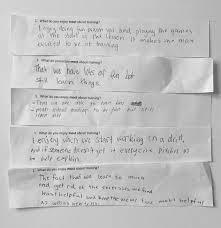 2. What do you enjoy most about training?
I enjoy doing fun warm ups and playing the games
at the start of the lesson. It makes me more
excited to be at training
2. What do you enjoy most about training?
That we have lots of fun but
still learn things.
2. What do you enjoy most about training?
- That we are able to have fun
2. What do you enjoy most about training?
I enjoy when we start working on a drill,
and if someone doesn't get it everyone pitches in
to help explain.
2. What do you enjoy most about training?
The fact that we learn so much
and get rid of the exercises we find
least helpful and have the ones we find most helpful